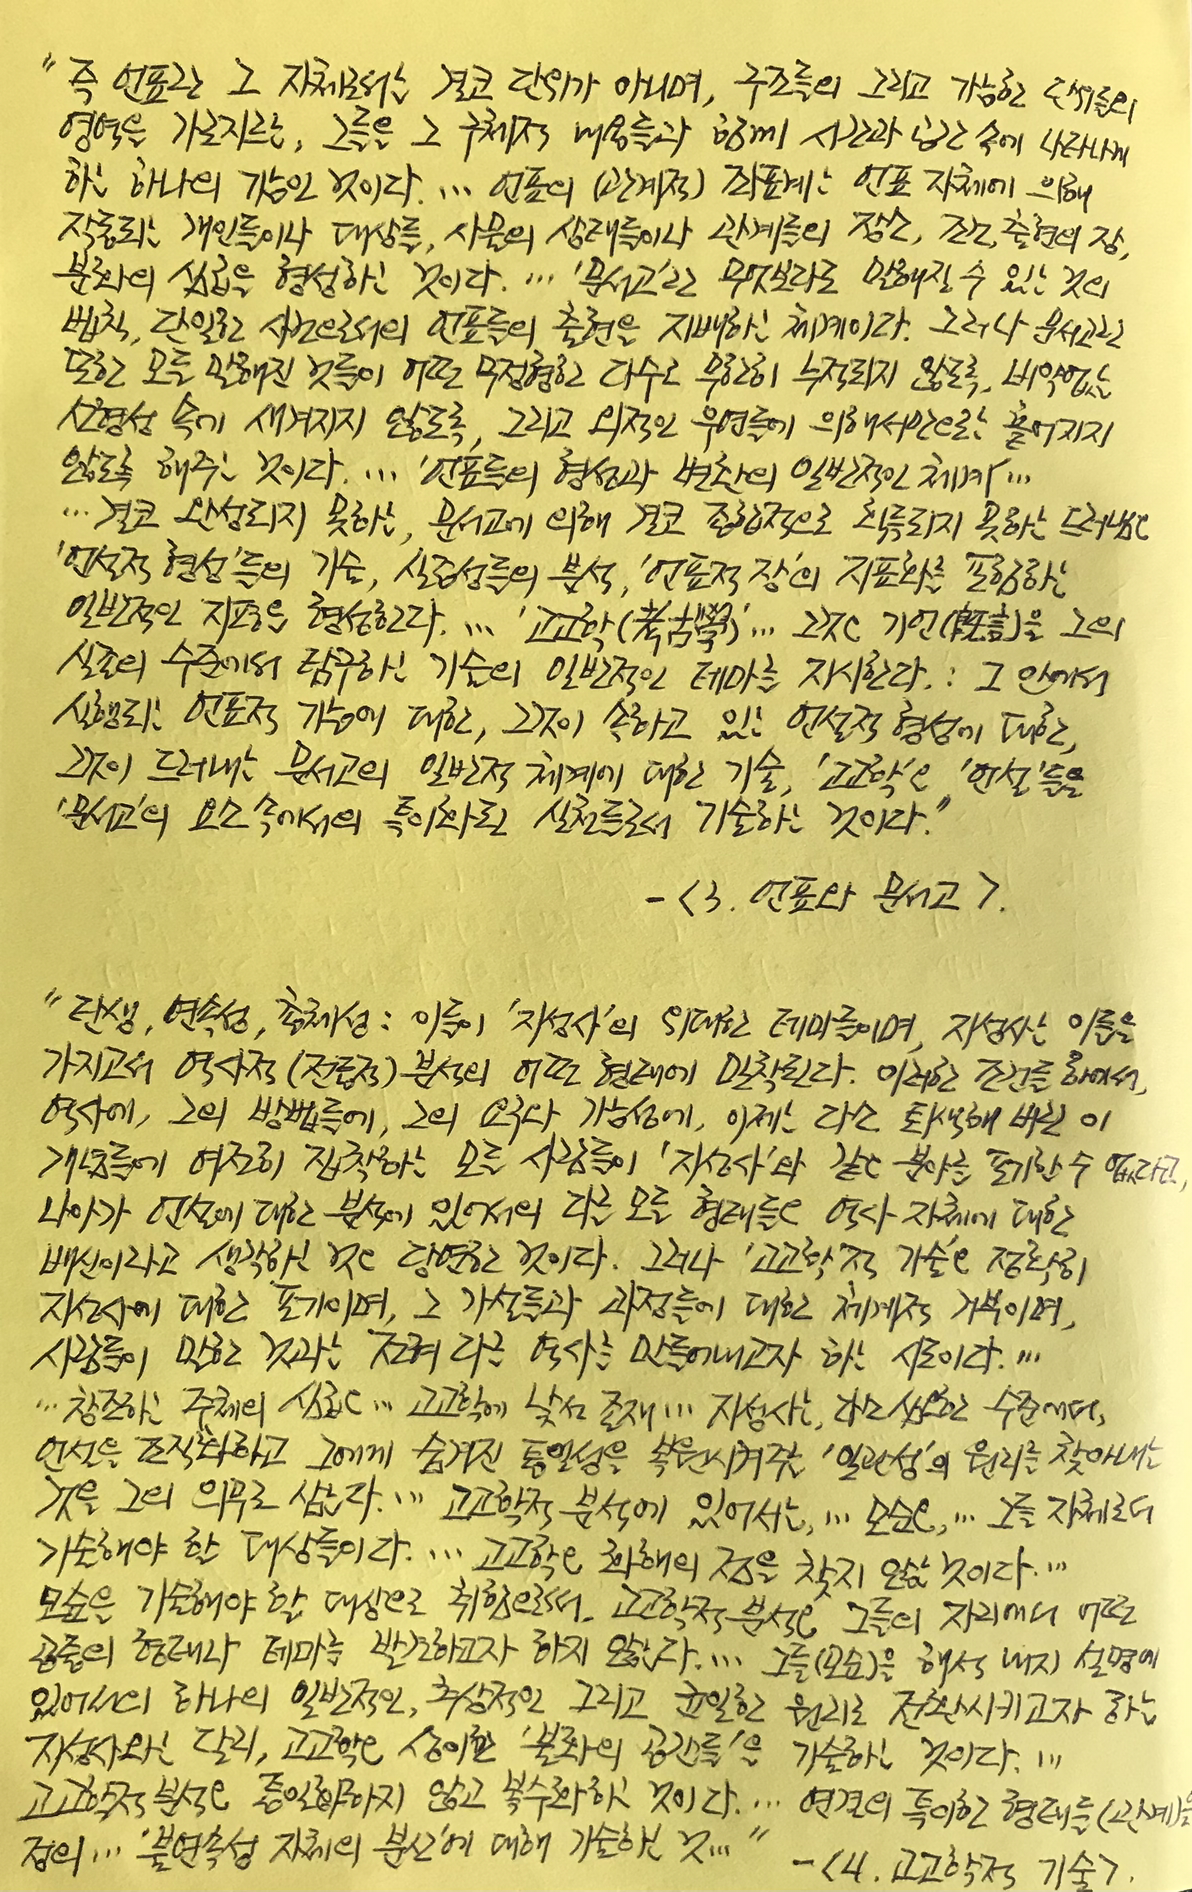 " 즉 언표란 그 자체로서는 결코 단위가 아니며, 구조들의 그리고 가능한 단위들의
영역을 가로지르는, 그들을 그 구체적 내용들과 함께 시간과 공간 속에 나타나게
하는 하나의 기능인 것이다. … 언표의 (관계적) 좌표계는 언표 자체에 의해
작동되는 개인들이나 대상들, 사물의 상태들이나 관계들의 장소, 조건, 출현의 장,
분화의 심급을 형성하는 것이다. … '문서고'란 무엇보다도 말해질 수 있는 것의
법칙, 단일한 사건으로서의 언표들의 출현을 지배하는 체계이다. 그러나 문서고란
또한 모든 말해진 것들이 어떤 무정형한 다수로 무한히 누적되지 않도록, 비약없는
선형성 속에 새겨지지 않도록, 그리고 외적인 우연들에 의해서만으로는 흩어지지
않도록 해주는 것이다. … '언표들의 형성과 변환의 일반적인 체계' …
… 결코 완성되지 못하는, 문서고에 의해 결코 종합적으로 획득되지 못하는 드러냄은
'언설적 형성'들의 기술, 실증성들의 분석, '언표적 장'의 지표화를 포함하는
일반적인 지평을 형성한다. … '고고학(考古學)' … 그것은 기언(旣言)을 그의
실존의 수준에서 탐구하는 기술의 일반적인 테마를 지시한다. : 그 안에서
실행되는 언표적 기능에 대한, 그것이 속하고 있는 언설적 형성에 대한,
그것이 드러내는 문서고의 일반적 체계에 대한 기술, '고고학'은 '언설'들을
'문서고'의 요소 속에서의 특이화된 실천들로서 기술하는 것이다."
- < 3. 언표와 문서고 >.
" 탄생, 연속성, 총체성 : 이들이 '지성사'의 위대한 테마들이며, 지성사는 이들을
가지고서 역사적 (전통적) 분석의 어떤 형태에 밀착된다. 이러한 조건들 하에서,
역사에, 그의 방법들에, 그의 요구와 가능성에, 이제는 다소 퇴색해 버린 이
개념들에 여전히 집착하는 모든 사람들이 '지성사'와 같은 분야를 포기할 수 없다고,
나아가 언설에 대한 분석에 있어서의 다른 모든 형태들은 역사 자체에 대한
배신이라고 생각하는 것은 당연한 것이다. 그러나 '고고학'적 기술은 정확히
지성사에 대한 포기이며, 그 가설들과 과정들에 대한 체계적 거부이며,
사람들이 말한 것과는 전혀 다른 역사를 만들어내고자 하는 시도이다. …
… 창조하는 주체의 심급은 … 고고학에 낯선 존재 … 지성사는, 다소 심오한 수준에서,
언설을 조직화하고 그에게 숨겨진 통일성을 복원시켜주는 '일관성'의 원리를 찾아내는
것을 그의 의무로 삼는다. … 고고학적 분석에 있어서는, … 모순은, … 그들 자체로서
기술해야 할 대상들이다. … 고고학은 화해의 점을 찾지 않는 것이다. …
모순을 기술해야 할 대상으로 취함으로써, 고고학적 분석은 그들의 자리에서 어떤
공통의 형태나 테마를 발견하고자 하지 않는다. … 그들(모순)을 해석 내지 설명에
있어서의 하나의 일반적인, 추상적인 그리고 균일한 원리로 전환시키고자 하는
지성사와는 달리, 고고학은 상이한 '분화의 공간들'을 기술하는 것이다. …
고고학적 분석은 통일화하지 않고 복수화하는 것이다. … 연견의 특이한 형태들(관계)을
정의 … '불연속성 자체의 분산'에 대해 기술하는 것 … "
- < 4. 고고학적 기술 >.